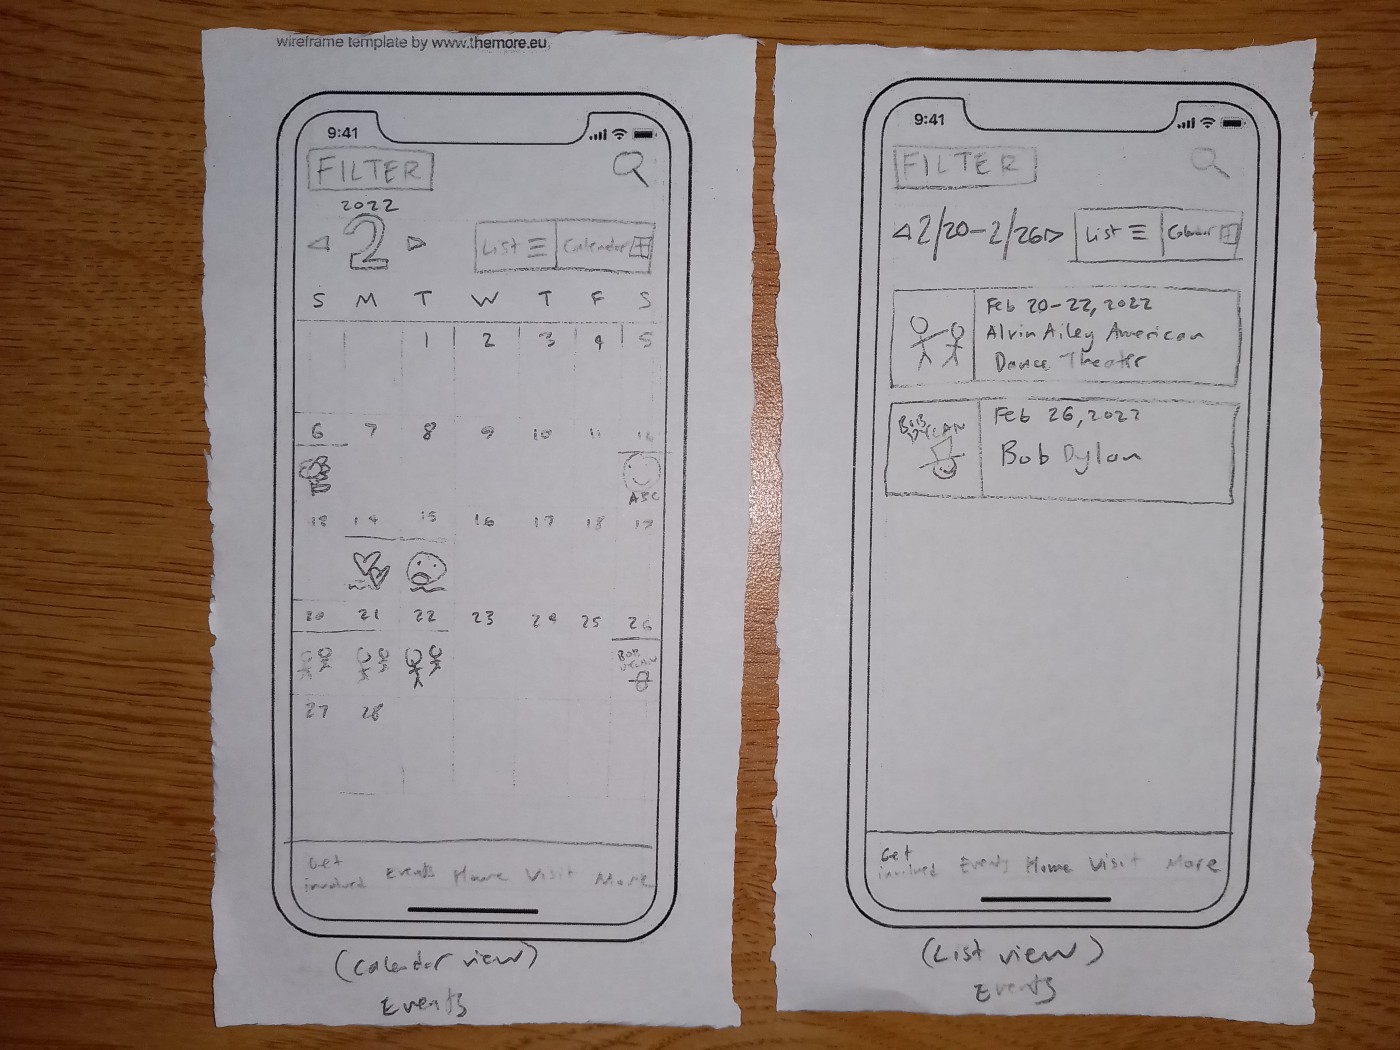 wireframe template by www.themore.eu
9:41
FILTER
2022
2
List
Calendar
S M T W T F S
1 2 3 4 5
6 7 8 9 10 11 12
ABC
13 14 15 16 17 18 19
20 21 22 23 24 25 26
BOB
DYLAN
27 28
Get
involved
Events Home Visit More
(Calendar view)
Events
9:41
FILTER
2/20-2/26
List
Calendar
Feb 20-22, 2022
Alvin Ailey American
Dance Theater
BOB
DYLAN
Feb 26, 2022
Bob Dylan
Get
involved
Events Home Visit More
(List view)
Events